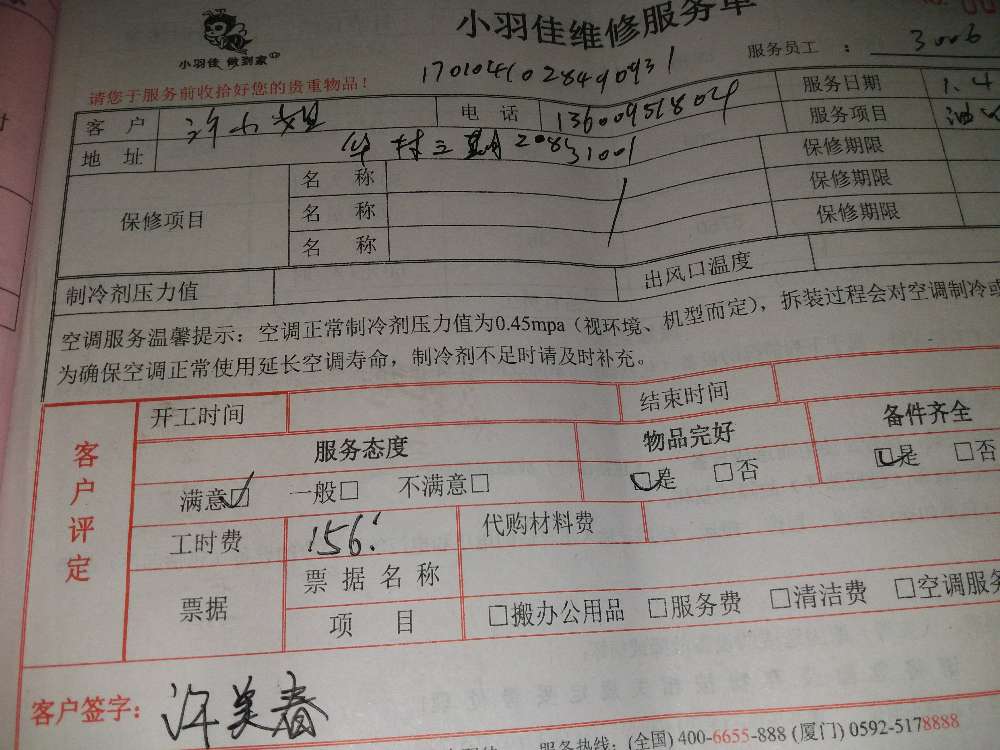 小羽佳维修服务单
小羽佳 做到家
服务员工 ： 3006
请您于服务前收拾好您的贵重物品！
客 户 许小姐 电 话 13600951804 服务日期 1.4
地 址 华 村三期208 1001 服务项目 油
保修项目 名 称 保修期限
名 称 保修期限
名 称 保修期限
制冷剂压力值 出风口温度
空调服务温馨提示：空调正常制冷剂压力值为0.45mpa（视环境、机型而定），拆装过程会对空调制冷或
为确保空调正常使用延长空调寿命，制冷剂不足时请及时补充。
客户评定
开工时间 结束时间
服务态度 物品完好 备件齐全
满意☑ 一般□ 不满意□ ☑是 □否 ☑是 □否
工时费 156. 代购材料费
票据 票据名称
项 目 □搬办公用品 □服务费 □清洁费 □空调服务
客户签字： 许美春
服务热线：(全国) 400-6655-888 (厦门) 0592-5178888